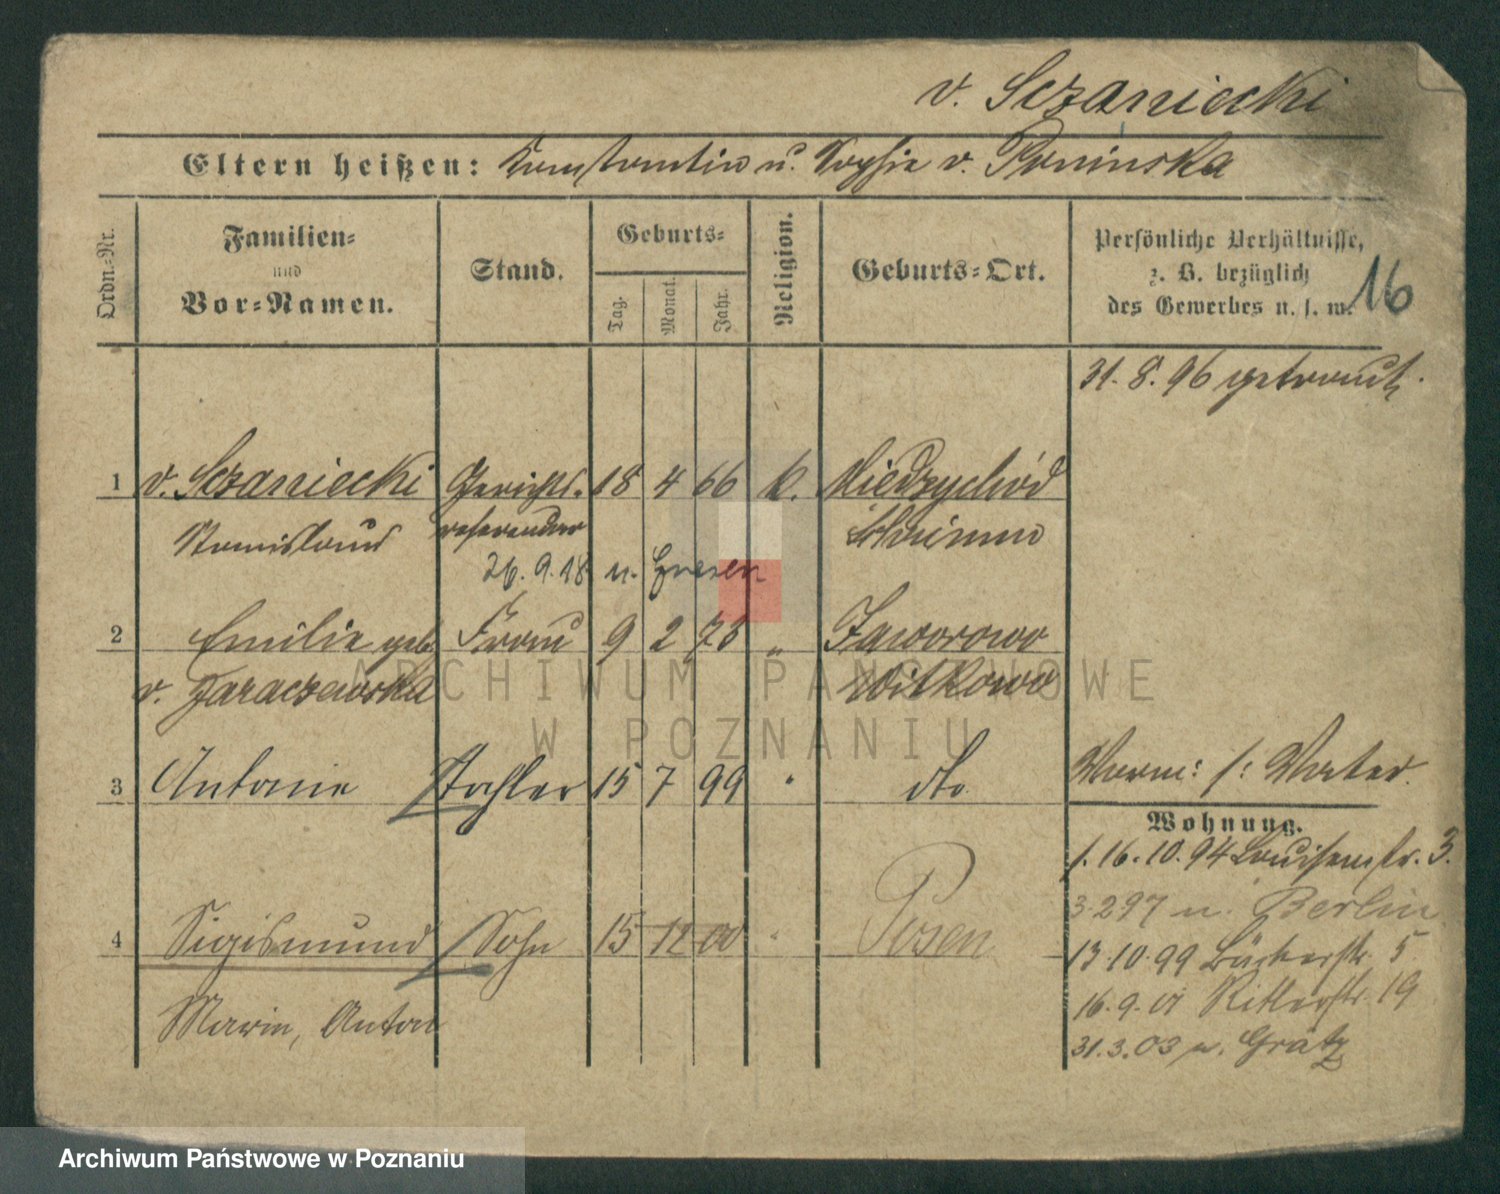 v. Sczaniecki
Eltern heißen: Konstantin u. Sophie v. Poninska
Ordn.-Nr.
Familien- und Vor-Namen.
Stand.
Geburts-
Tag. Monat. Jahr.
Religion.
Geburts-Ort.
Persönliche Verhältnisse,
z. B. bezüglich
des Gewerbes u. s. w.
16
31. 8. 96 getraut.
1 v. Sczaniecki Gerichts- 18 4 66 k. Miedzychód
Stanislaus referendar Schrimm
26. 9. 18 n. Gnesen
2 Emilie geb. Frau 9 2 73 " Jaworowo
v. Jaraczewska Witkowo
3 Antonie Tochter 15 7 99 " dto.
Vorm: s: Vater.
Wohnung.
1. 16. 10. 94 Louisenstr. 3.
3. 2 97 n. Berlin
13. 10. 99 Bäckerstr. 5
4 Sigismund Sohn 15 12 00 " Posen
16. 9. 01 Ritterstr. 19
Maria, Anton
31. 3. 03 n. Grätz
ARCHIWUM PAŃSTWOWE
W POZNANIU
Archiwum Państwowe w Poznaniu